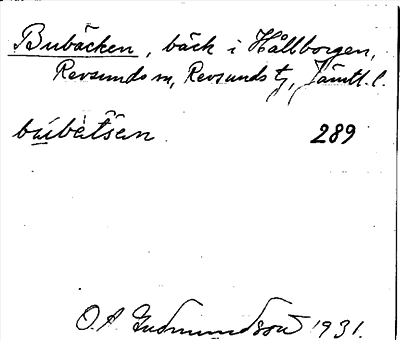 Bubäcken, bäck i Hållborgen,
Revsunds sn, Revsunds tj, Jämtl. l.
búbètsen 289
O.A. Gudmundson 1931.